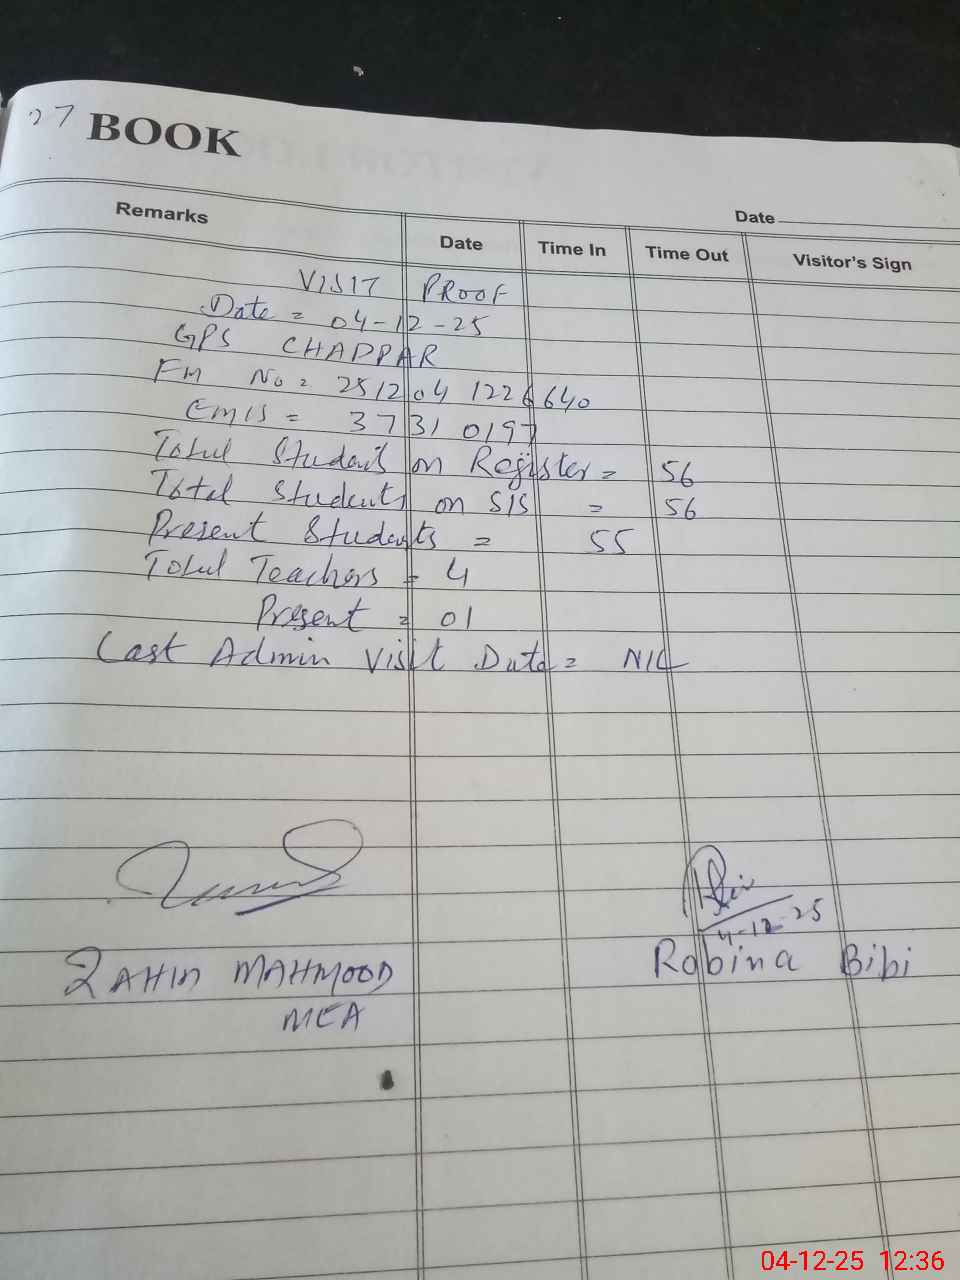 27 BOOK
Date
Remarks Date Time In Time Out Visitor's Sign
VISIT PROOF
Date = 04-12-25
GPS CHAPPAR
FM No = 251204 1226640
EMIS = 37310197
Total Students on Register = 56
Total Students on SIS = 56
Present Students = 55
Total Teachers = 4
Present = 01
Last Admin Visit Date = NIL
4-12-25
MAHMOOD Robina Bibi
MEA
04-12-25 12:36